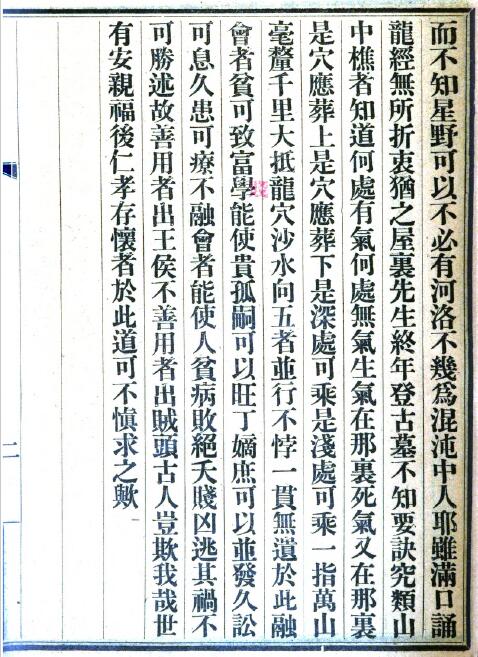 而不知星野可以不必有河洛不幾為混沌中人耶雖滿口誦
龍經無所折衷猶之屋裏先生終年登古墓不知要訣究類山
中樵者知道何處有氣何處無氣生氣在那裏死氣又在那裏
是穴應葬上是穴應葬下是深處可乘是淺處可乘一指萬山
毫釐千里大抵龍穴沙水向五者並行不悖一貫無遺於此融
會者貧可致富學能使貴孤嗣可以旺丁嫡庶可以並發久訟
可息久患可療不融會者能使人貧病敗絕夭賤凶逃其禍不
可勝述故善用者出王侯不善用者出賊頭古人豈欺我哉世
有安親福後仁孝存懷者於此道可不慎求之歟
二